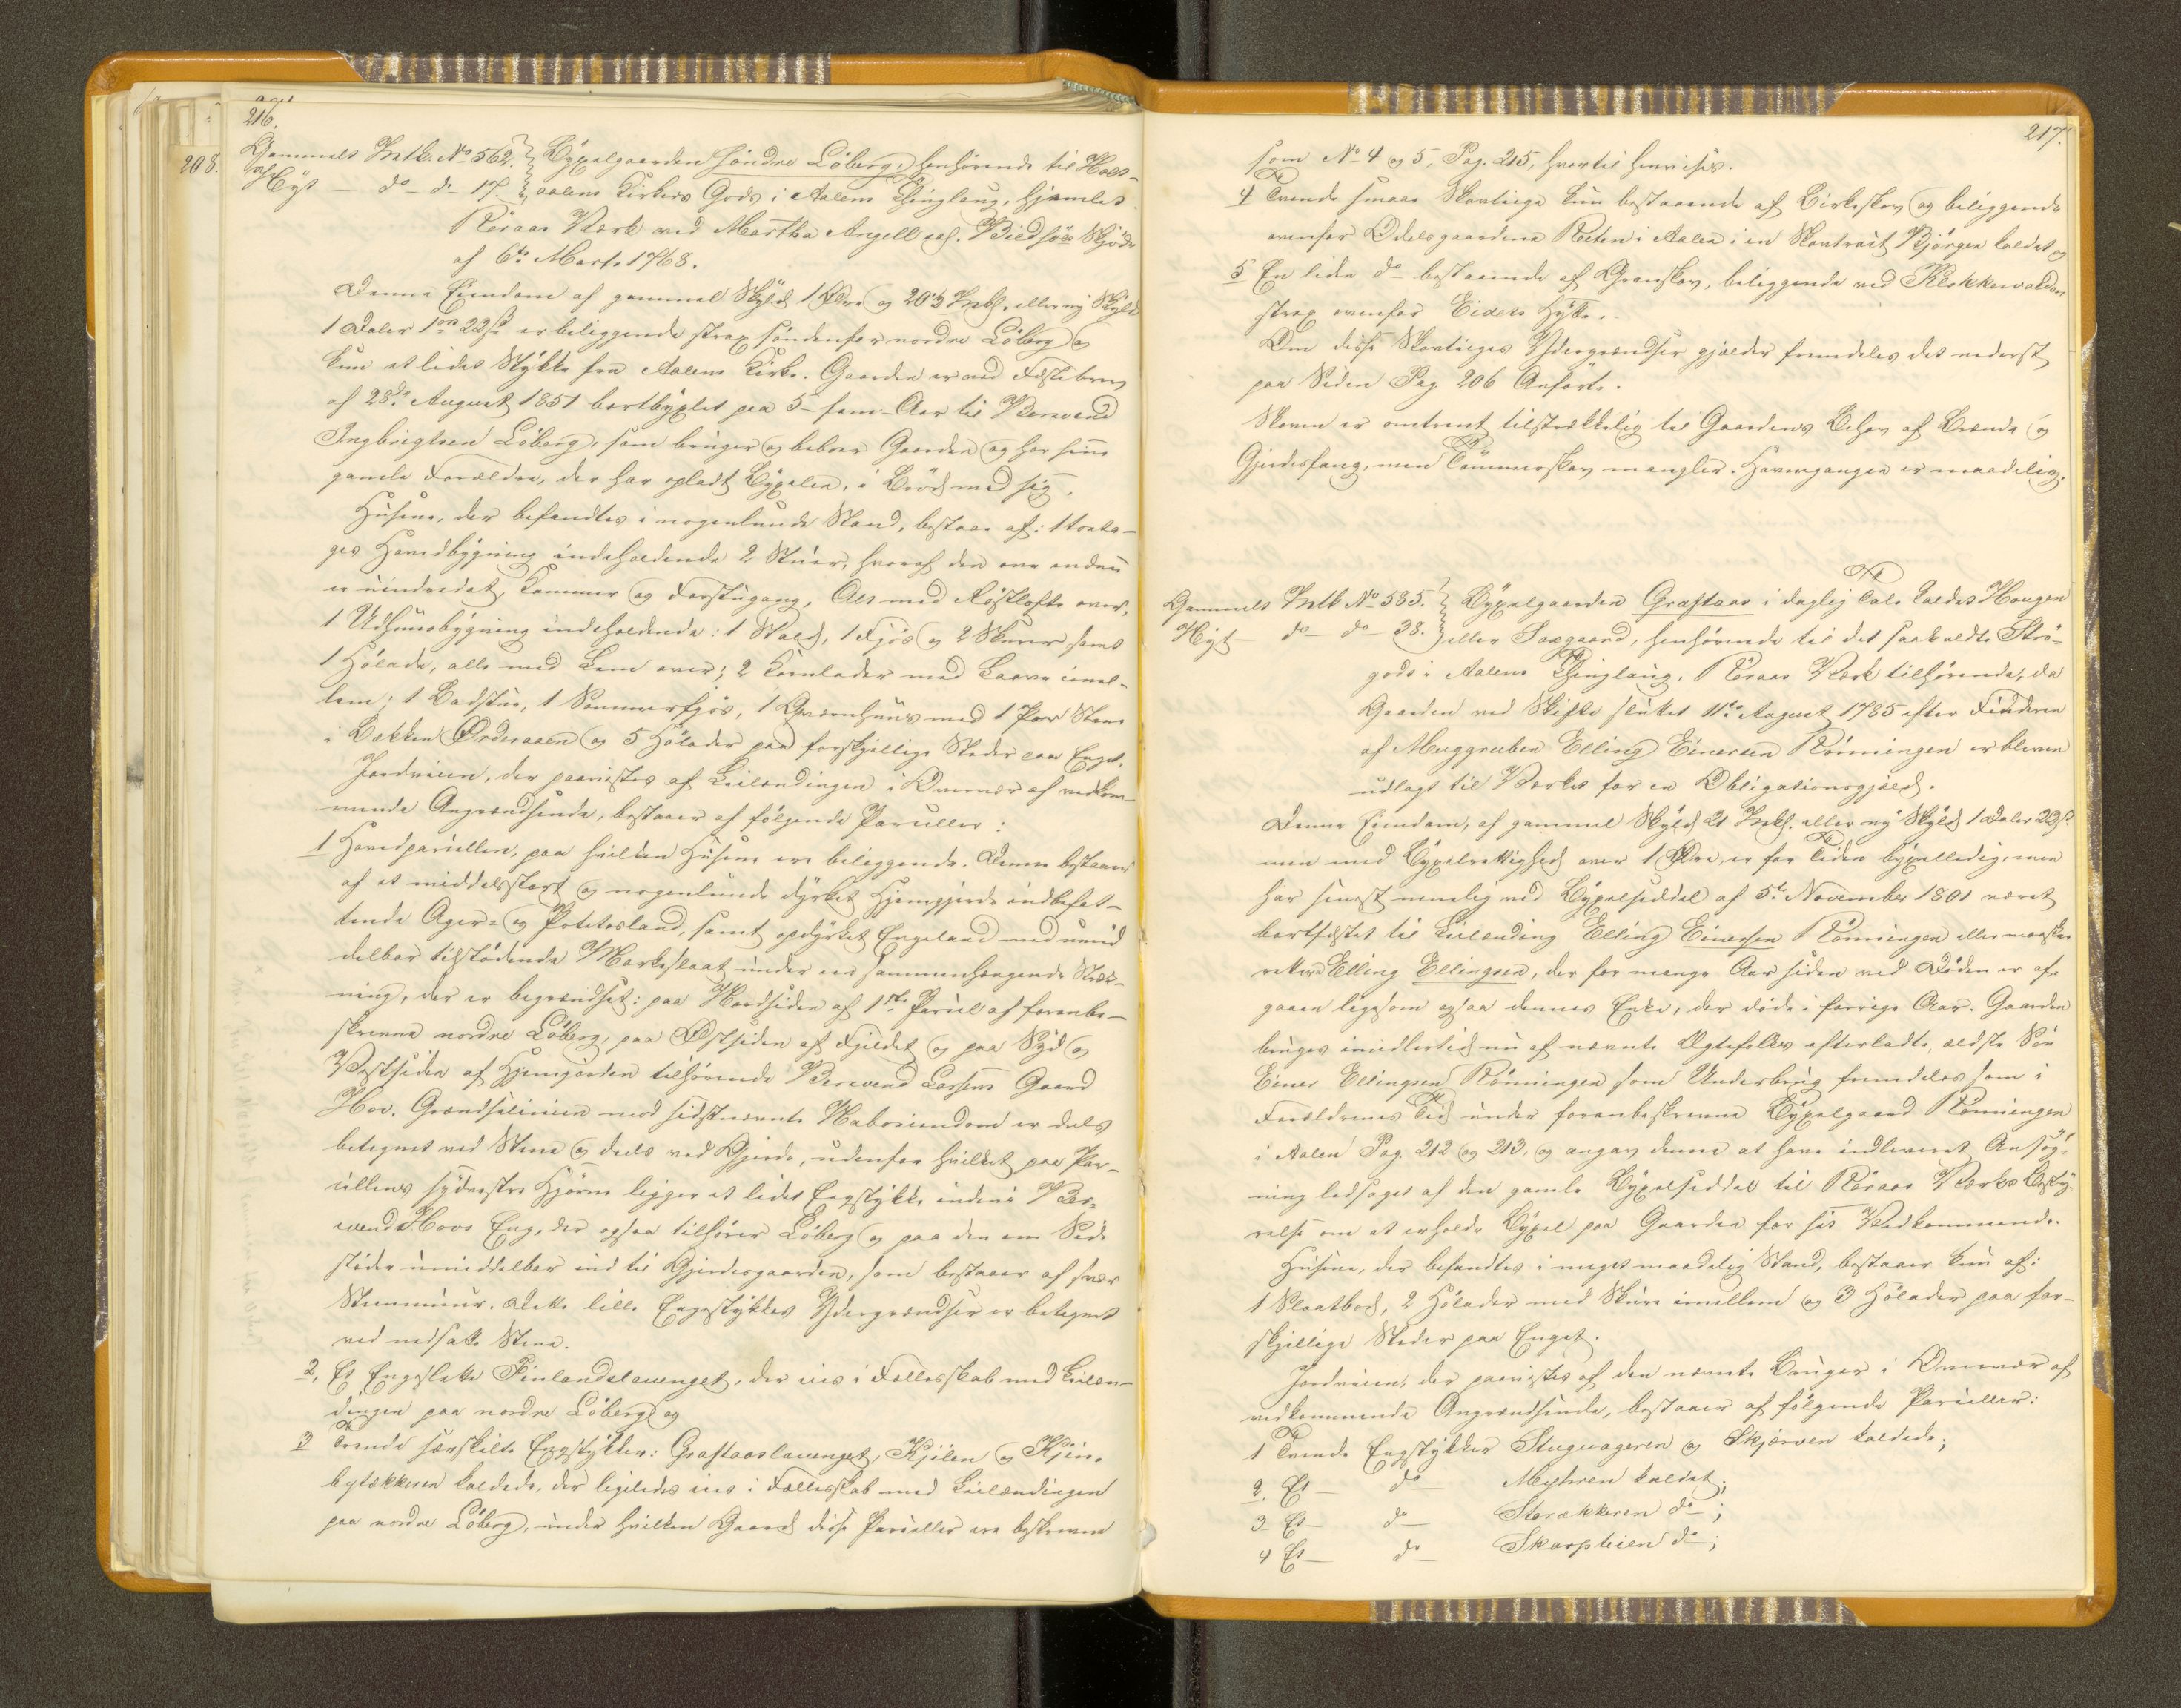 216.
208.
Gammelt Mtk. No 562. } Bÿgselgaarden Söndre Löberg, henhörende til Holt-
Nÿt — do — do 17. } aalens Kirkes Gods i Aalens Thinglaug, hjemlet
Röraas Værk ved Martha Angell sal. Bield söes Skjöde
af 6te Marts 1768.
Denne Eiendom af gammel Skÿld 1 Øre og 20½ Mkl. eller nÿ Skÿld
1 Daler 1 ort 22 ß er beliggende strax söndenfor nordre Löberg og
kun et lidet Stÿkke fra Aalens Kirke. Gaarden er ved Fæstebrev
af 28de August 1851 bortbÿgslet paa 5 — fem — Aar til Bersvend
Ingbrigtsen Löberg, som bruger og beboer Gaarden og har sine
gamle Forældre, der har opladt Bÿgselen, i Bröd med sig.
Husene, der befandtes i nogenlunde Stand, bestaae af: 1 toeta-
ges Hovedbÿgning indeholdende 2 Stuer, hvoraf den ene endnu
er uindredet, Kammer og Forstugang, Alt med Röstlofte over,
1 Udhuusbÿgning indeholdende: 1 Stald, 1 Fjös og 2 Skurer samt
1 Hölade, alle med Lem over; 2 Kornlader med Laave imel-
lem; 1 Badstue, 1 Sommerfjös, 1 Qværnhuus med 1 Par Stene
i Bækken Ørderaaen og 5 Hölader paa forskjellige Steder paa Enget.
Jordveien, der paavistes af Leilændingen i Overvær af vedkom-
mende Angrændsende, bestaaer af fölgende Parceller:
1 Hovedparcellen, paa hvilken Husene ere beliggende. Denne bestaaer
af et middelsstort og nogenlunde dÿrket Hjemgjerde indbefat-
tende Ager- og Potetesland, samt opdÿrket Engeland med umid
delbar tilstödende Markeslaat under een sammenhængende Stræk-
ning, der er begrændset: paa Nordsiden af 1ste Parcel af foranbe-
skrevne nordre Löberg, paa Østsiden af Fjeldet og paa Sÿd og
Vestsiden af Hjemjorden tilhörende Bersvend Larsens Gaard
Hov. Grændselinien mod sidstnævnte Naboeiendom er dels
betegnet ved Stene og deels ved Gjerde, udenfor hvilket paa Par-
cellens sÿdvestre Hjörne ligger et lidet Engstÿkke indeni Ber-
svend Hovs Eng, der ogsaa tilhörer Löberg og paa den ene Side
stöder umiddelbar ind til Gjerdesgaarden, som bestaaer af svær
Steenmuur. Dette lille Engstÿkkes Ydergrændser er betegnet
ved nedsatte Stene.
2. Et Engslette Finlandslauenget, der eies i Fællesskab med Leilæn-
dingen paa nordre Löberg og
3 Trende særskilte Engstÿkker: Graftaaslauenget, Kjilen og Kjen-
bytækkeren kaldede, der ligeledes eies i Fællesskab med Leilændingen
paa nordre Löberg, under hvilken Gaard disse Parceller ere beskrevne
217.
som No 4 og 5, Pag. 215, hvortil henvises.
4 Tvende smaae Skovteige kun bestaaende af Birkeskov og beliggende
ovenfor Odelsgaardene Reiten i Aalen i en Skovtract Bjørgen kaldet og
5 En liden do bestaaende af Granskov, beliggende ved Klokkervolden
strax ovenfor Eidets Hÿtte.
Om disse Skovteiges Ydergrændser gjælder fremdeles det nederst
paa Siden Pag 206 Anförte.
Skoven er omtrent tilstrækkelig til Gaardens Behov af Brænde og
Gjerdesfang, men Tömmerskov mangler. Havnegangen er maadelig.
Gammelt Mtk No 585. } Bÿgselgaarden Graftaas i daglig Tale kaldet Haugen
Nÿt — do — do 38. } eller Saxgaard, henhörende til det saakaldte Strö-
gods i Aalens Thinglaug, Röraas Værk tilhörende, da
Gaarden ved Skifte sluttet 11te August 1785 efter Finderen
af Muggruben Elling Einersen Rönningen er bleven
udlagt til Værket for en Obligationsgjæld.
Denne Eiendom, af gammel Skÿld 21 Mkl. eller nÿ Skÿld 1 Daler 22 ß.
men med Bÿgselrettighed over 1 Øre, er for Tiden bÿgselledig, men
har senest nemlig ved Bÿgselseddel af 5te November 1801 været
bortfæstet til Leilænding Elling Einersen Rönningen eller maaskee
rettere Elling Ellingsen, der for mange Aar siden ved Döden er af-
gaaen ligesom ogsaa dennes Enke, der döde i forrige Aar. Gaarden
bruges imidlertid nu af nævnte Ægtefolks efterladte, ældste Sön
Einer Ellingsen Rönningen som Underbrug fremdeles som i
Forældrenes Tid under foranbeskrevne Bÿgselgaard Rönningen
i Aalen Pag. 212 og 213, og angav denne at have indleveret Ansög-
ning ledsaget af den gamle Bÿgselseddel til Röraas Værks Bestÿ-
relse om at erholde Bÿgsel paa Gaarden for sit Vedkommende.
Husene, der befandtes i meget maadelig Stand, bestaaer kun af:
1 Slaatbod, 2 Hölader med Skure imellem og 3 Hölader paa for-
skjellige Steder paa Enget.
Jordveien, der paavistes af den nævnte Bruger i Overvær af
vedkommende Angrændsende, bestaaer af fölgende Parceller:
1 Tvende Engstÿkker Stuguageren og Skjærven kaldede;
2. Et — do — Myhren kaldet;
3 Et — do — Storækkeren do —;
4 Et — do — Skarpteien do —;